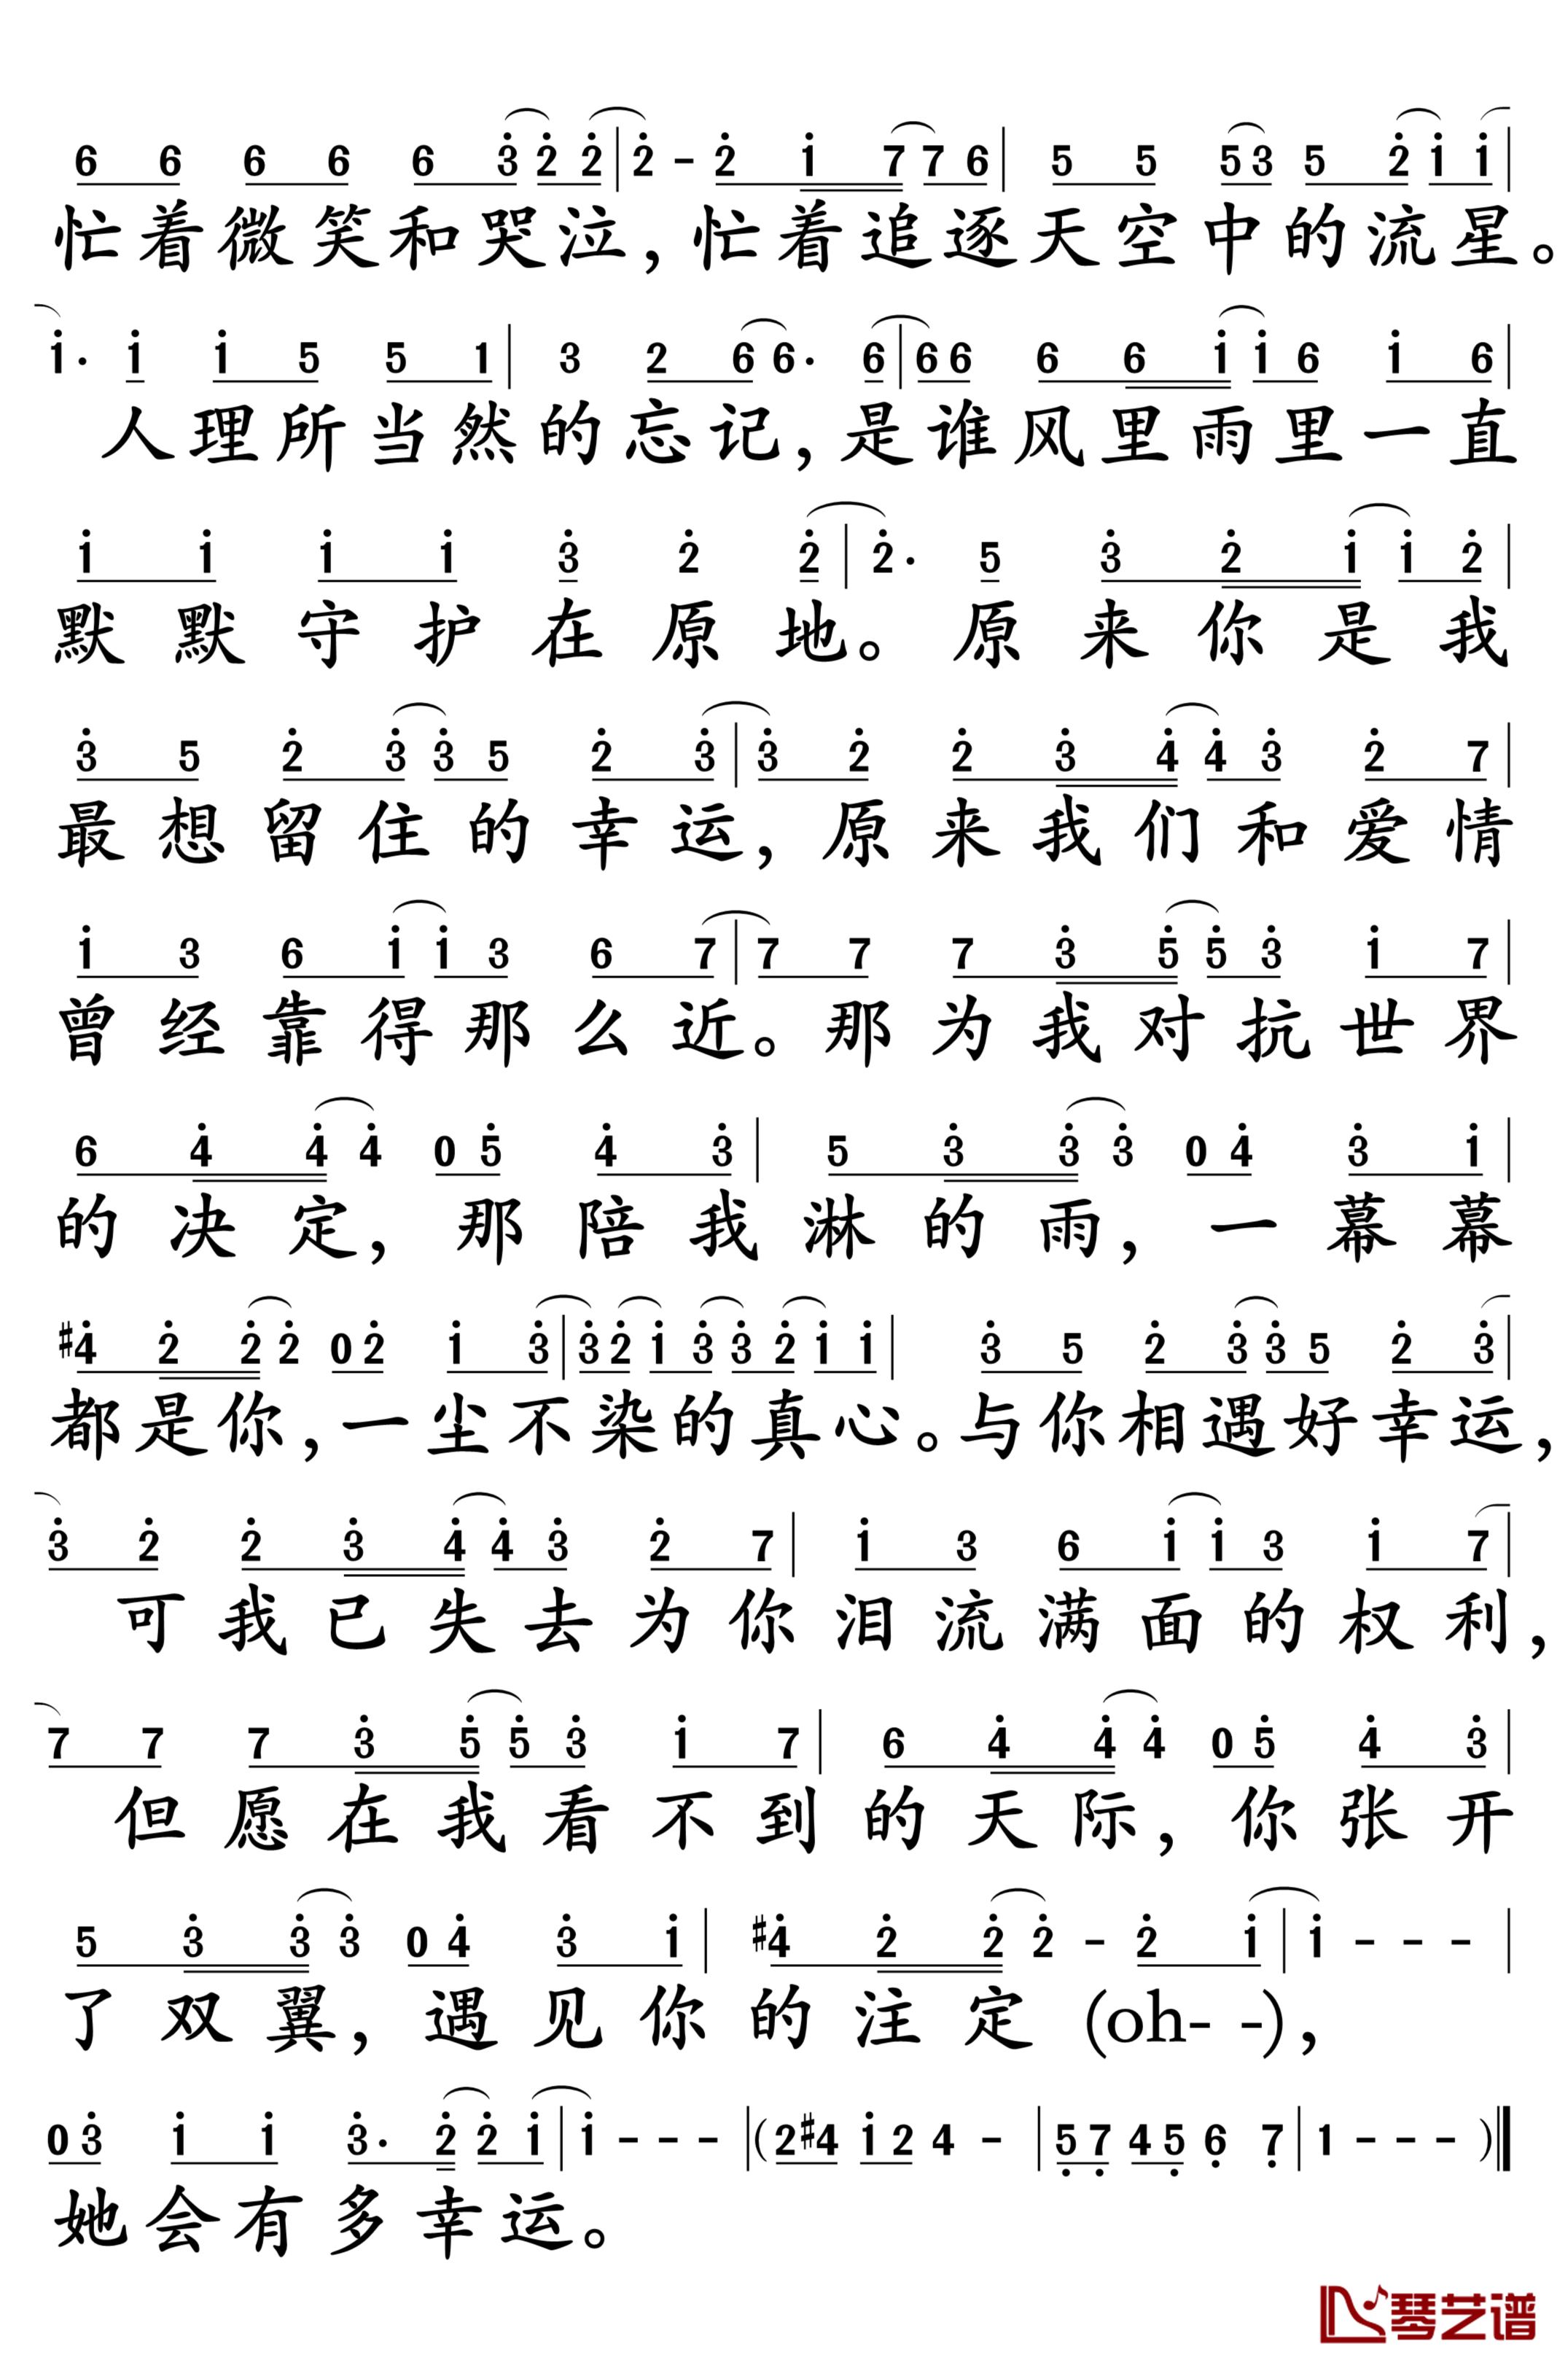 6 6 6 6 6 3 2 2 | 2 - 2 1 7 7 6 | 5 5 5 3 5 2 1 1 |
忙着微笑和哭泣，忙着追逐天空中的流星。
1· 1 1 5 5 1 | 3 2 6 6· 6 | 6 6 6 6 1 1 6 1 6 |
人理所当然的忘记，是谁风里雨里一直
1 1 1 1 3 2 2 | 2· 5 3 2 1 1 2 |
默默守护在原地。原来你是我
3 5 2 3 3 5 2 3 | 3 2 2 3 4 4 3 2 7 |
最想留住的幸运，原来我们和爱情
1 3 6 1 1 3 6 7 | 7 7 7 3 5 5 3 1 7 |
曾经靠得那么近。那为我对抗世界
6 4 4 4 0 5 4 3 | 5 3 3 3 0 4 3 1 |
的决定，那陪我淋的雨，一幕幕
#4 2 2 2 0 2 1 3 | 3 2 1 3 3 2 1 1 | 3 5 2 3 3 5 2 3 |
都是你，一尘不染的真心。与你相遇好幸运，
3 2 2 3 4 4 3 2 7 | 1 3 6 1 1 3 1 7 |
可我已失去为你泪流满面的权利，
7 7 7 3 5 5 3 1 7 | 6 4 4 4 0 5 4 3 |
但愿在我看不到的天际，你张开
5 3 3 3 0 4 3 1 | #4 2 2 2 - 2 1 | 1 - - - |
了双翼，遇见你的注定 (oh- -)，
0 3 1 1 3· 2 2 1 | 1 - - - | (2 #4 1 2 4 - | 5 7 4 5 6 7 | 1 - - - )‖
她会有多幸运。
琴艺谱